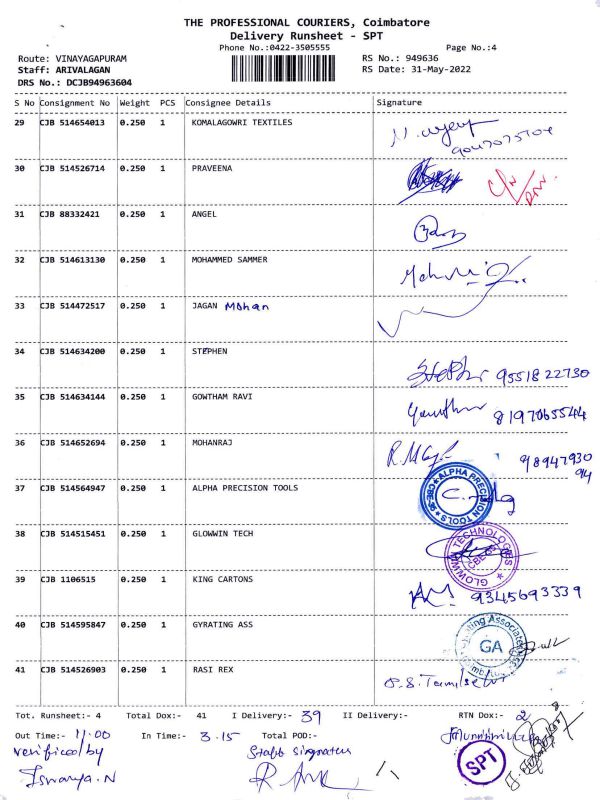 THE PROFESSIONAL COURIERS, Coimbatore
Delivery Runsheet - SPT
Phone No.:0422-3505555 Page No.:4
Route: VINAYAGAPURAM RS No.: 949636
Staff: ARIVALAGAN RS Date: 31-May-2022
DRS No.: DCJB94963604
S No Consignment No Weight PCS Consignee Details Signature
29 CJB 514654013 0.250 1 KOMALAGOWRI TEXTILES
30 CJB 514526714 0.250 1 PRAVEENA
31 CJB 88332421 0.250 1 ANGEL
32 CJB 514613130 0.250 1 MOHAMMED SAMMER
33 CJB 514472517 0.250 1 JAGAN Mohan
34 CJB 514634200 0.250 1 STEPHEN 9551822730
35 CJB 514634144 0.250 1 GOWTHAM RAVI 8197065544
36 CJB 514652694 0.250 1 MOHANRAJ 98947930
94
37 CJB 514564947 0.250 1 ALPHA PRECISION TOOLS ALPHA PRECISION TOOLS
38 CJB 514515451 0.250 1 GLOWWIN TECH GLOWWIN TECHNOLOGIES
39 CJB 1106515 0.250 1 KING CARTONS 9345693339
40 CJB 514595847 0.250 1 GYRATING ASS GA
41 CJB 514526903 0.250 1 RASI REX
Tot. Runsheet:- 4 Total Dox:- 41 I Delivery:- 39 II Delivery:- RTN Dox:- 2
Out Time:- 11.00 In Time:- 3.15 Total POD:-
verified by Staff Signature SPT
Iswarya.N